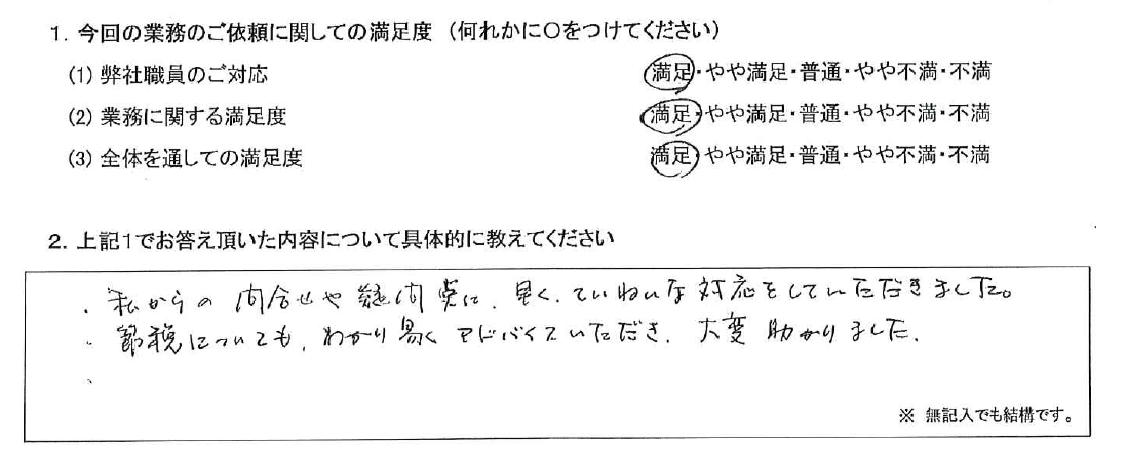 1. 今回の業務のご依頼に関しての満足度 (何れかに○をつけてください)
(1) 弊社職員のご対応 満足・やや満足・普通・やや不満・不満
(2) 業務に関する満足度 満足・やや満足・普通・やや不満・不満
(3) 全体を通しての満足度 満足・やや満足・普通・やや不満・不満
2. 上記1でお答え頂いた内容について具体的に教えてください
・私からの問合せや疑問点に、早く、ていねいな対応をしていただきました。
・節税についても、わかり易くアドバイスいただき、大変助かりました。
※ 無記入でも結構です。